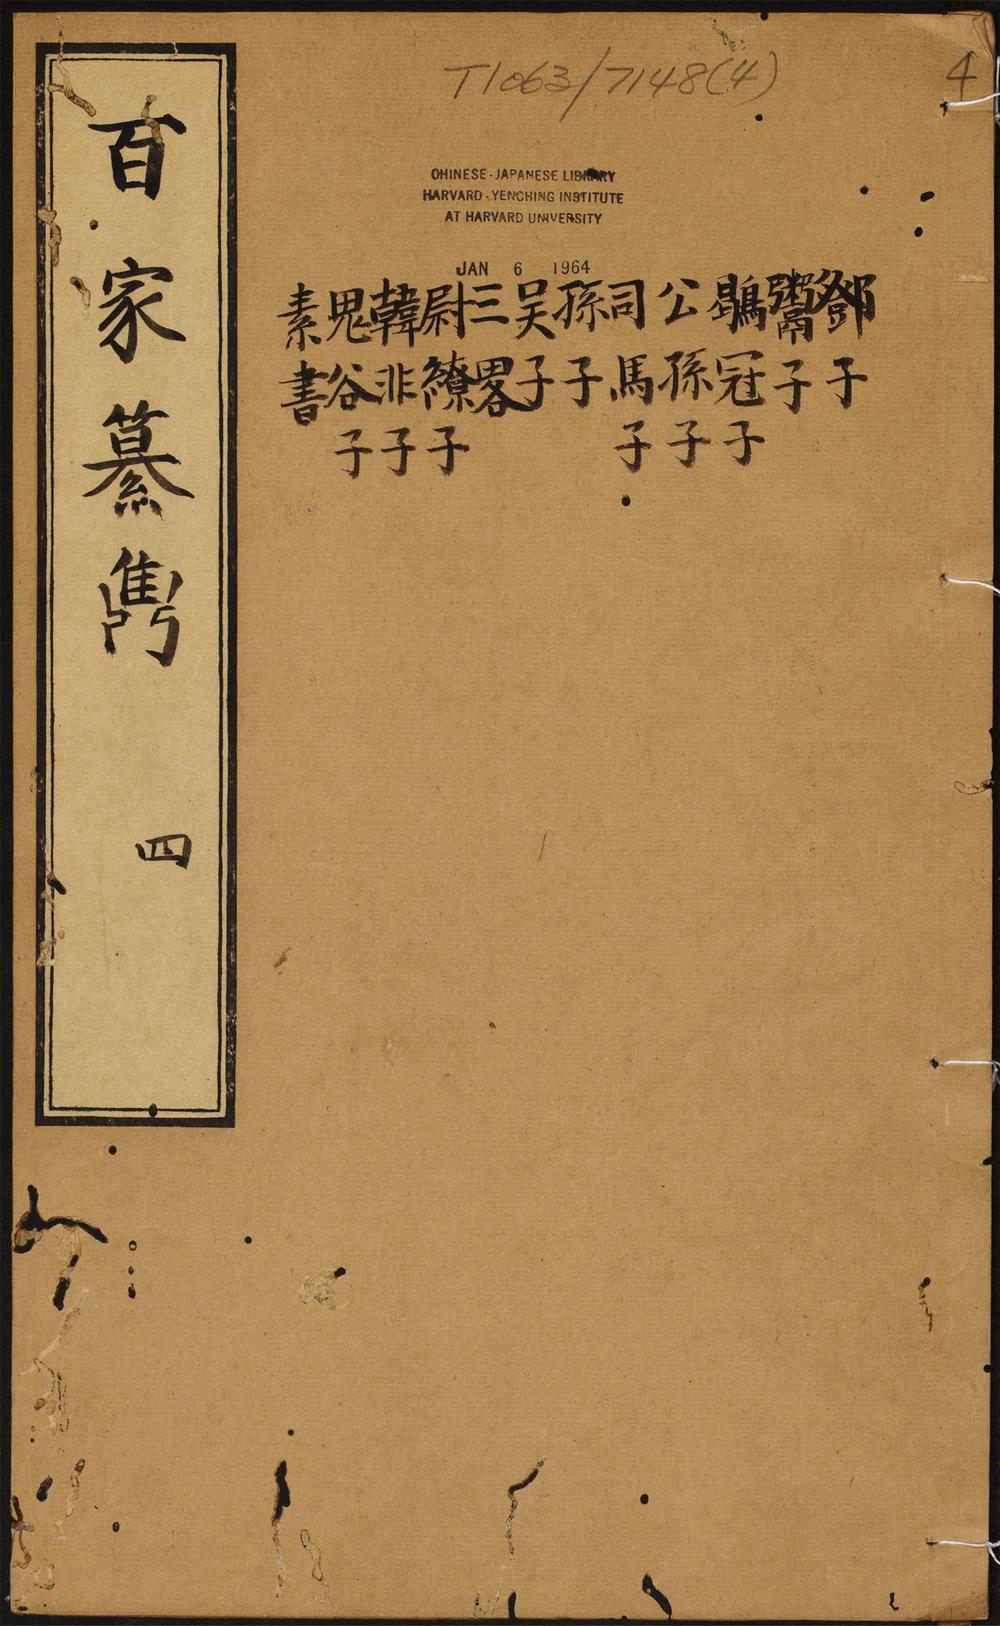 T1063/7148(4)
4
CHINESE-JAPANESE LIBRARY
HARVARD-YENCHING INSTITUTE
AT HARVARD UNIVERSITY
JAN 6 1964
鄧子
鬻子
鶡冠子
公孫子
司馬子
孫子
吴子
三畧
尉繚子
韓非子
鬼谷子
素書
百家纂雋
四